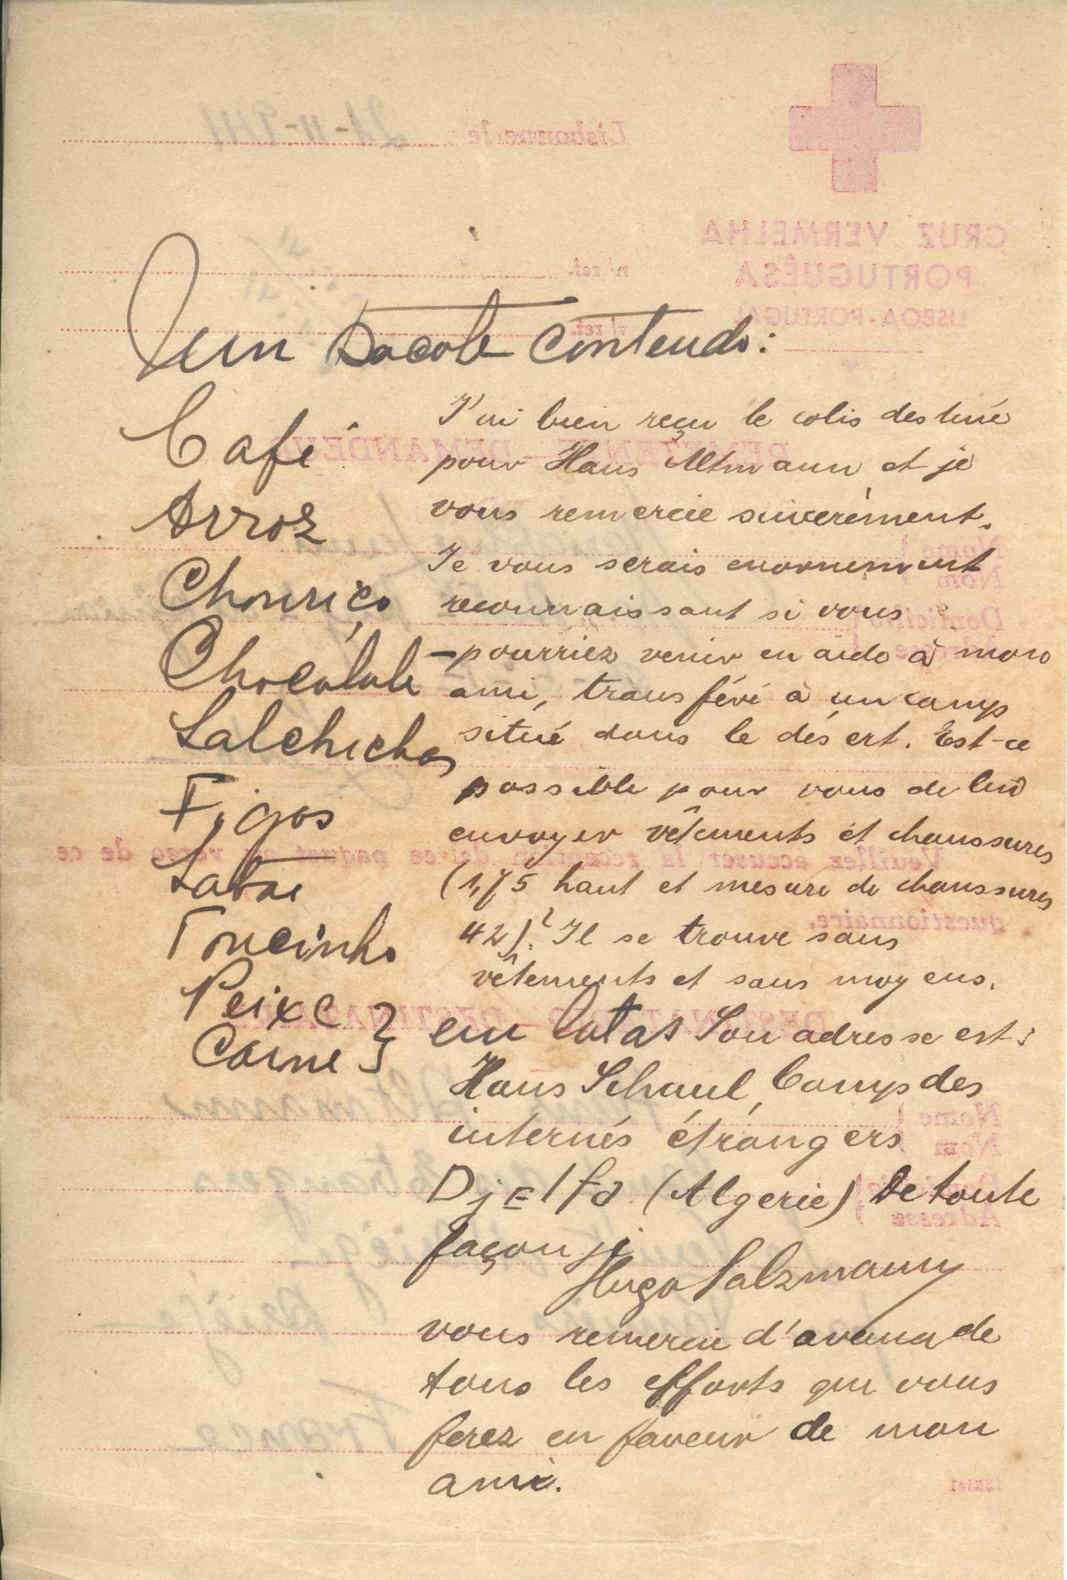 um Pacote contendo:
Café
Arroz
Chouriço
Chocolate
Salchichas
Figos
Toucinho
Peixe
Carne } em latas
J'ai bien reçu le colis destiné
pour Hans Altmann et je
vous remercie sincerément.
Je vous serais enormement
reconnaissant si vous
pourriez venir en aide à mon
ami, transféré à un camp
situé dans le désert. Est-ce
possible pour vous de lui
envoyer vêtements et chaussures
(1,75 haut et mesure de chaussures
42)? Il se trouve sans
vêtements et sans moyens.
Son adresse est:
Hans Schaul, Camp des
internés étrangers
Djelfa (Algerie) De toute
façon je
Hugo Salzmann
vous remercie d'avance de
tous les efforts que vous
ferez en faveur de mon
ami.
CRUZ VERMELHA
PORTUGUÊSA
LISBOA-PORTUGAL
Lisbonne, le
n/ref.
/ref.
Nome
Nom
Veuillez accuser la réception de ce paquet au verso de ce
questionnaire.
Nome
Nom
Adresse
France